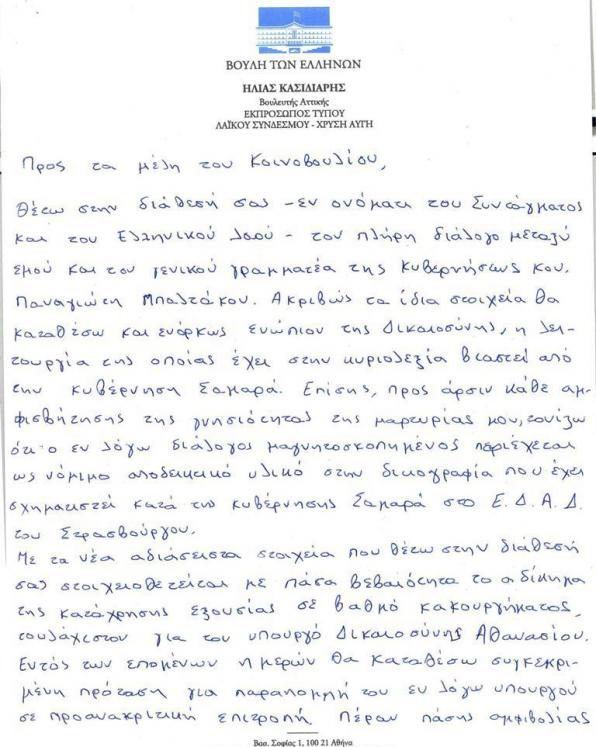 ΒΟΥΛΗ ΤΩΝ ΕΛΛΗΝΩΝ
ΗΛΙΑΣ ΚΑΣΙΔΙΑΡΗΣ
Βουλευτής Αττικής
ΕΚΠΡΟΣΩΠΟΣ ΤΥΠΟΥ
ΛΑΪΚΟΥ ΣΥΝΔΕΣΜΟΥ - ΧΡΥΣΗ ΑΥΓΗ
Προς τα μέλη του Κοινοβουλίου,
Θέτω στην διάθεσή σας - εν ονόματι του Συντάγματος
και του Ελληνικού Λαού - τον πλήρη διάλογο μεταξύ
εμού και του γενικού γραμματέα της Κυβερνήσεως κου.
Παναγιώτη Μπαλτάκου. Ακριβώς τα ίδια στοιχεία θα
καταθέσω και ενόρκως ενώπιον της Δικαιοσύνης, η λει-
τουργία της οποίας έχει στην κυριολεξία βιαστεί από
την κυβέρνηση Σαμαρά. Επίσης, προς άρσιν κάθε αμ-
φισβήτησης της γνησιότητας της μαρτυρίας μου, τονίζω
ότι ο εν λόγω διάλογος μαγνητοσκοπημένος περιέχεται
ως νόμιμο αποδεικτικό υλικό στην δικογραφία που έχει
σχηματιστεί κατά της κυβέρνησης Σαμαρά στο Ε.Δ.Α.Δ.
του Στρασβούργου.
Με τα νέα αδιάσειστα στοιχεία που θέτω στην διάθεσή
σας στοιχειοθετείται με πάσα βεβαιότητα το αδίκημα
της κατάχρησης εξουσίας σε βαθμό κακουργήματος,
τουλάχιστον για τον υπουργό Δικαιοσύνης Αθανασίου.
Εντός των επομένων ημερών θα καταθέσω συγκεκρι-
μένη πρόταση για παραπομπή του εν λόγω υπουργού
σε προανακριτική επιτροπή. Πέραν πάσης αμφιβολίας
Βασ. Σοφίας 1, 100 21 Αθήνα